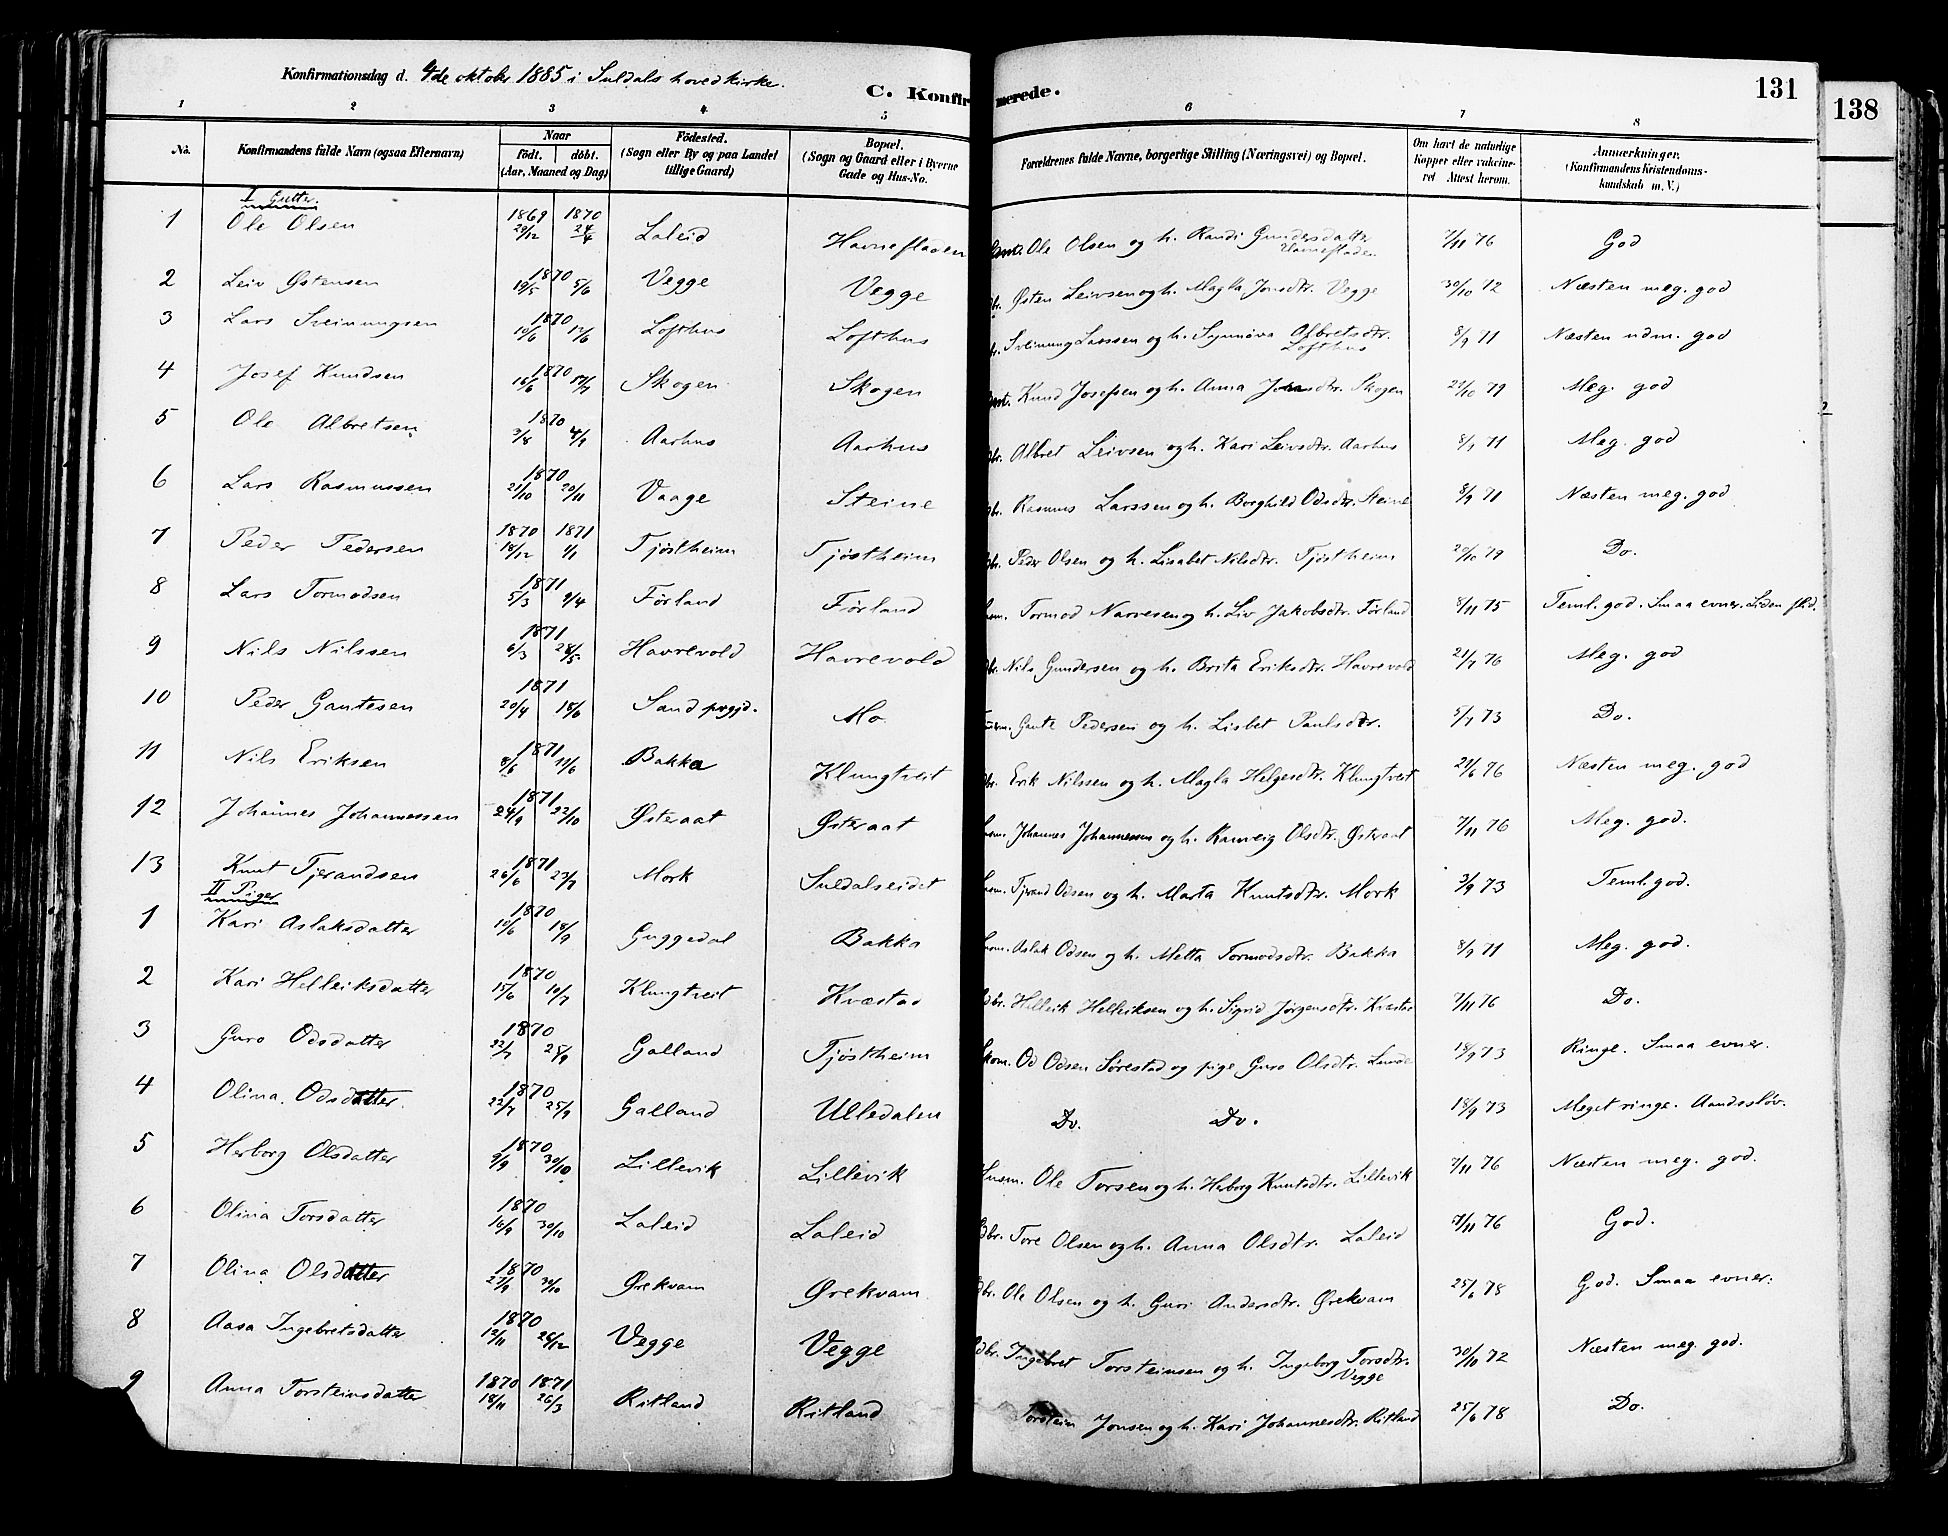 Konfirmationsdag d. 4de oktober 1885 i Suldals hovedkirke.
C. Konfirmerede.
131
138
1 2 3 4 5 6 7 8
No. Konfirmandens fulde Navn (ogsaa Efternavn) Naar födt. döbt. (Aar, Maaned og Dag) Födested. (Sogn eller By og paa Landet tillige Gaard) Bopæl. (Sogn og Gaard eller i Byerne Gade og Hus-No. Forældrenes fulde Navne, borgerlige Stilling (Næringsvei) og Bopæl. Om havt de naturlige Kopper eller vakcineret. Attest herom. Anmærkninger. (Konfirmandens Kristendomskundskab m. V.)
I Gutter.
1 Ole Olsen 1869 29/12 1870 24/4 Laleid Havnefladen Ole Olsen og h. Randi Gundersdatter Havnefladen 7/11 76 God
2 Leiv Østensen 1870 19/5 5/6 Vegge Vegge Østen Leivsen og h. Magla Jonsdtr. Vegge 30/10 72 Næsten meg. god
3 Lars Sveinungsen 1870 10/6 12/6 Lofthus Lofthus Sveinung Larssen og h. Synnøva Albretsdtr. Lofthus 8/9 71 Næsten udm. god
4 Josef Knudsen 1870 16/6 17/7 Skogen Skogen Knud Josefsen og h. Anna Skogen 22/10 79 Meg. god
5 Ole Albretsen 1870 3/8 4/9 Aarhus Aarhus Albret Leivsen og h. Kari Leivsdtr. Aarhus 8/9 71 Meg. god
6 Lars Rasmussen 1870 21/10 20/11 Vaage Steine Rasmus Larssen og h. Borghild Odsdtr. Steine 8/9 71 Næsten meg. god
7 Peder Pedersen 1870 18/12 1871 1/1 Tjøstheim Tjøstheim Peder Olsen og h. Lisabet Nilsdtr. Tjøstheim 22/10 79 Do.
8 Lars Tormodsen 1871 5/3 9/4 Førland Førland Tormod Narvesen og h. Liv Jakobsdtr. Førland 8/11 75 Teml. god. Smaa evner. Liden flid.
9 Nils Nilssen 1871 6/3 28/5 Havrevold Havrevold Nils Gundersen og h. Brita Eriksdtr. Havrevold 21/7 76 Meg. god
10 Peder Gautesen 1871 20/4 18/6 Sand prgjd. Mo Gaute Pedersen og h. Lisbet Paulsdtr. 5/7 73 Do.
11 Nils Eriksen 1871 8/6 11/6 Bakka Klungtveit Erik Nilssen og h. Magla Helgesdtr. Klungtveit 21/6 76 Næsten meg. god
12 Johannes Johannessen 1871 24/9 22/10 Østeraat Østeraat Johannes Johannessen og h. Ranveig Olsdtr. Østeraat 7/11 76 Meg. god.
13 Knut Tjerandsen 1871 26/6 23/7 Mork Suldalseidet Tjerand Odsen og h. Marta Knutsdtr. Mork 3/9 73 Teml. god.
II Piger
1 Kari Aslaksdatter 1870 10/6 18/9 Guggedal Bakka Aslak Odsen og h. Metta Tormodsdtr. Bakka 8/9 71 Meg. god.
2 Kari Helleiksdatter 1870 15/6 10/7 Klungtveit Kvæstad Gdbr. Helleik Helleiksen og h. Sigrid Jørgensdtr. Kvæstad 7/11 76 Do.
3 Guro Odsdatter 1870 22/7 25/9 Galland Tjøstheim Od Odsen Sørestad og pige Guro Olsdtr. Lunde 18/9 73 Ringe. Smaa evner.
4 Olina Odsdatter. 1870 22/7 25/9 Galland Ulledalen Do. Do. 18/9 73 Meget ringe. Aandssløv.
5 Herborg Olsdatter 1870 9/9 30/10 Lillevik Lillevik Husm. Ole Torsen og h. Herborg Knutsdtr. Lillevik 7/11 76 Næsten meg. god.
6 Olina Torsdatter 1870 16/9 30/10 Laleid Laleid Gdbr. Tore Olsen og h. Anna Olsdtr. Laleid 7/11 76 God.
7 Olina Olsdatter 1870 27/9 30/10 Ørekvam Ørekvam Gdbr. Ole Olsen og h. Guri Andersdtr. Ørekvam 25/6 78 God. Smaa evner.
8 Aasa Ingebretsdatter 1870 12/11 26/12 Vegge Vegge Gdbr. Ingebret Torsteinsen og h. Ingeborg Torsdtr. Vegge 30/10 72 Næsten meg. god.
9 Anna Torsteinsdatter 1870 18/11 1871 26/3 Ritland Ritland Torstein Jonsen og h. Kari Johannesdtr. Ritland 25/6 78 Do.